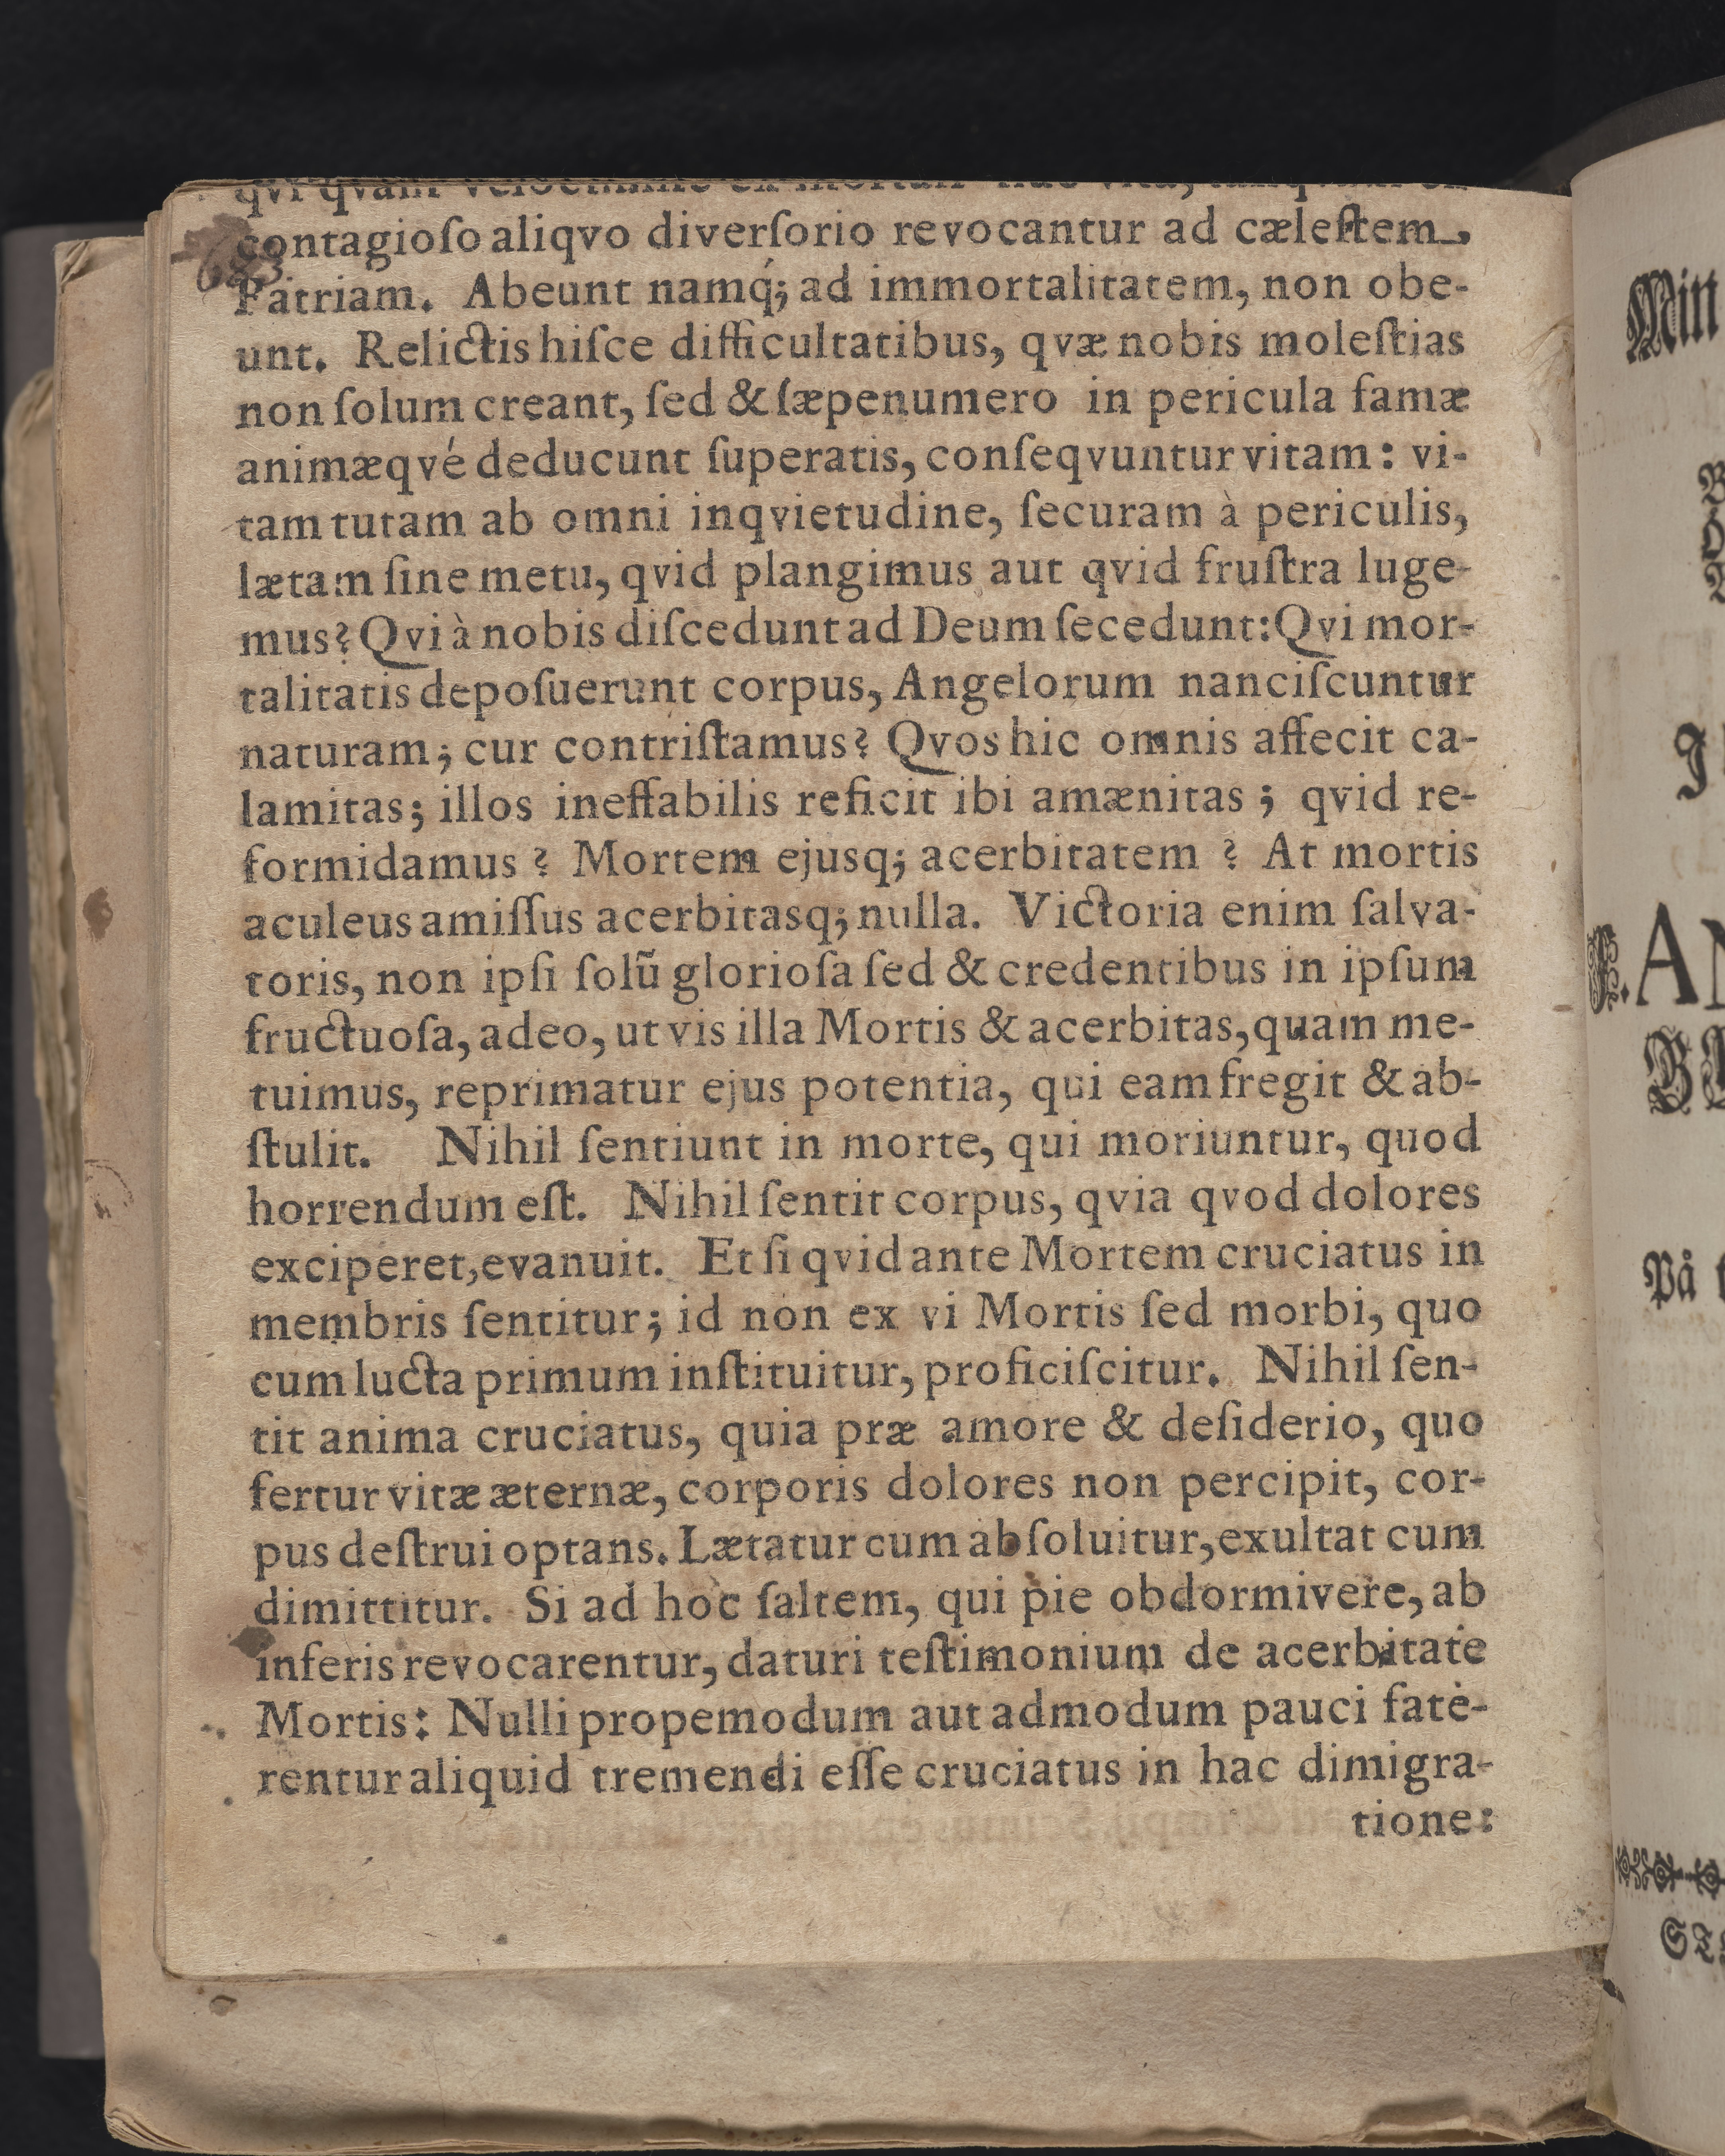 qvi qvam
contagioſo aliqvo diverſorio revocantur ad cæleſtem,
Patriam. Abeunt namq́; ad immortalitatem, non obe-
unt. Relictis hiſce difficultatibus, qvæ nobis moleſtias
non ſolum creant, ſed & ſæpenumero in pericula famæ
animæqvé deducunt ſuperatis, conſeqvuntur vitam: vi-
tam tutam ab omni inqvietudine, ſecuram à periculis,
lætam ſine metu, qvid plangimus aut qvid fruſtra luge-
mus? Qvi à nobis diſcedunt ad Deum ſecedunt: Qvi mor-
talitatis depoſuerunt corpus, Angelorum nanciſcuntur
naturam; cur contriſtamus? Qvos hic omnis affecit ca-
lamitas; illos ineffabilis reficit ibi amænitas; qvid re-
formidamus? Mortem ejusq; acerbitatem? At mortis
aculeus amiſſus acerbitasq; nulla. Victoria enim ſalva-
toris, non ipſi ſolũ glorioſa ſed & credentibus in ipſum
fructuoſa, adeo, ut vis illa Mortis & acerbitas, quam me-
tuimus, reprimatur ejus potentia, qui eam fregit & ab-
ſtulit. Nihil ſentiunt in morte, qui moriuntur, quod
horrendum eſt. Nihil ſentit corpus, qvia qvod dolores
exciperet, evanuit. Et ſi qvid ante Mortem cruciatus in
membris ſentitur; id non ex vi Mortis ſed morbi, quo
cum lucta primum inſtituitur, proficiſcitur. Nihil ſen-
tit anima cruciatus, quia præ amore & deſiderio, quo
fertur vitæ æternæ, corporis dolores non percipit, cor-
pus deſtrui optans. Lætatur cum abſoluitur, exultat cum
dimittitur. Si ad hoc ſaltem, qui pie obdormivere, ab
inferis revocarentur, daturi teſtimonium de acerbitate
Mortis: Nulli propemodum aut admodum pauci fate-
rentur aliquid tremendi eſſe cruciatus in hac dimigra-
tione:
På